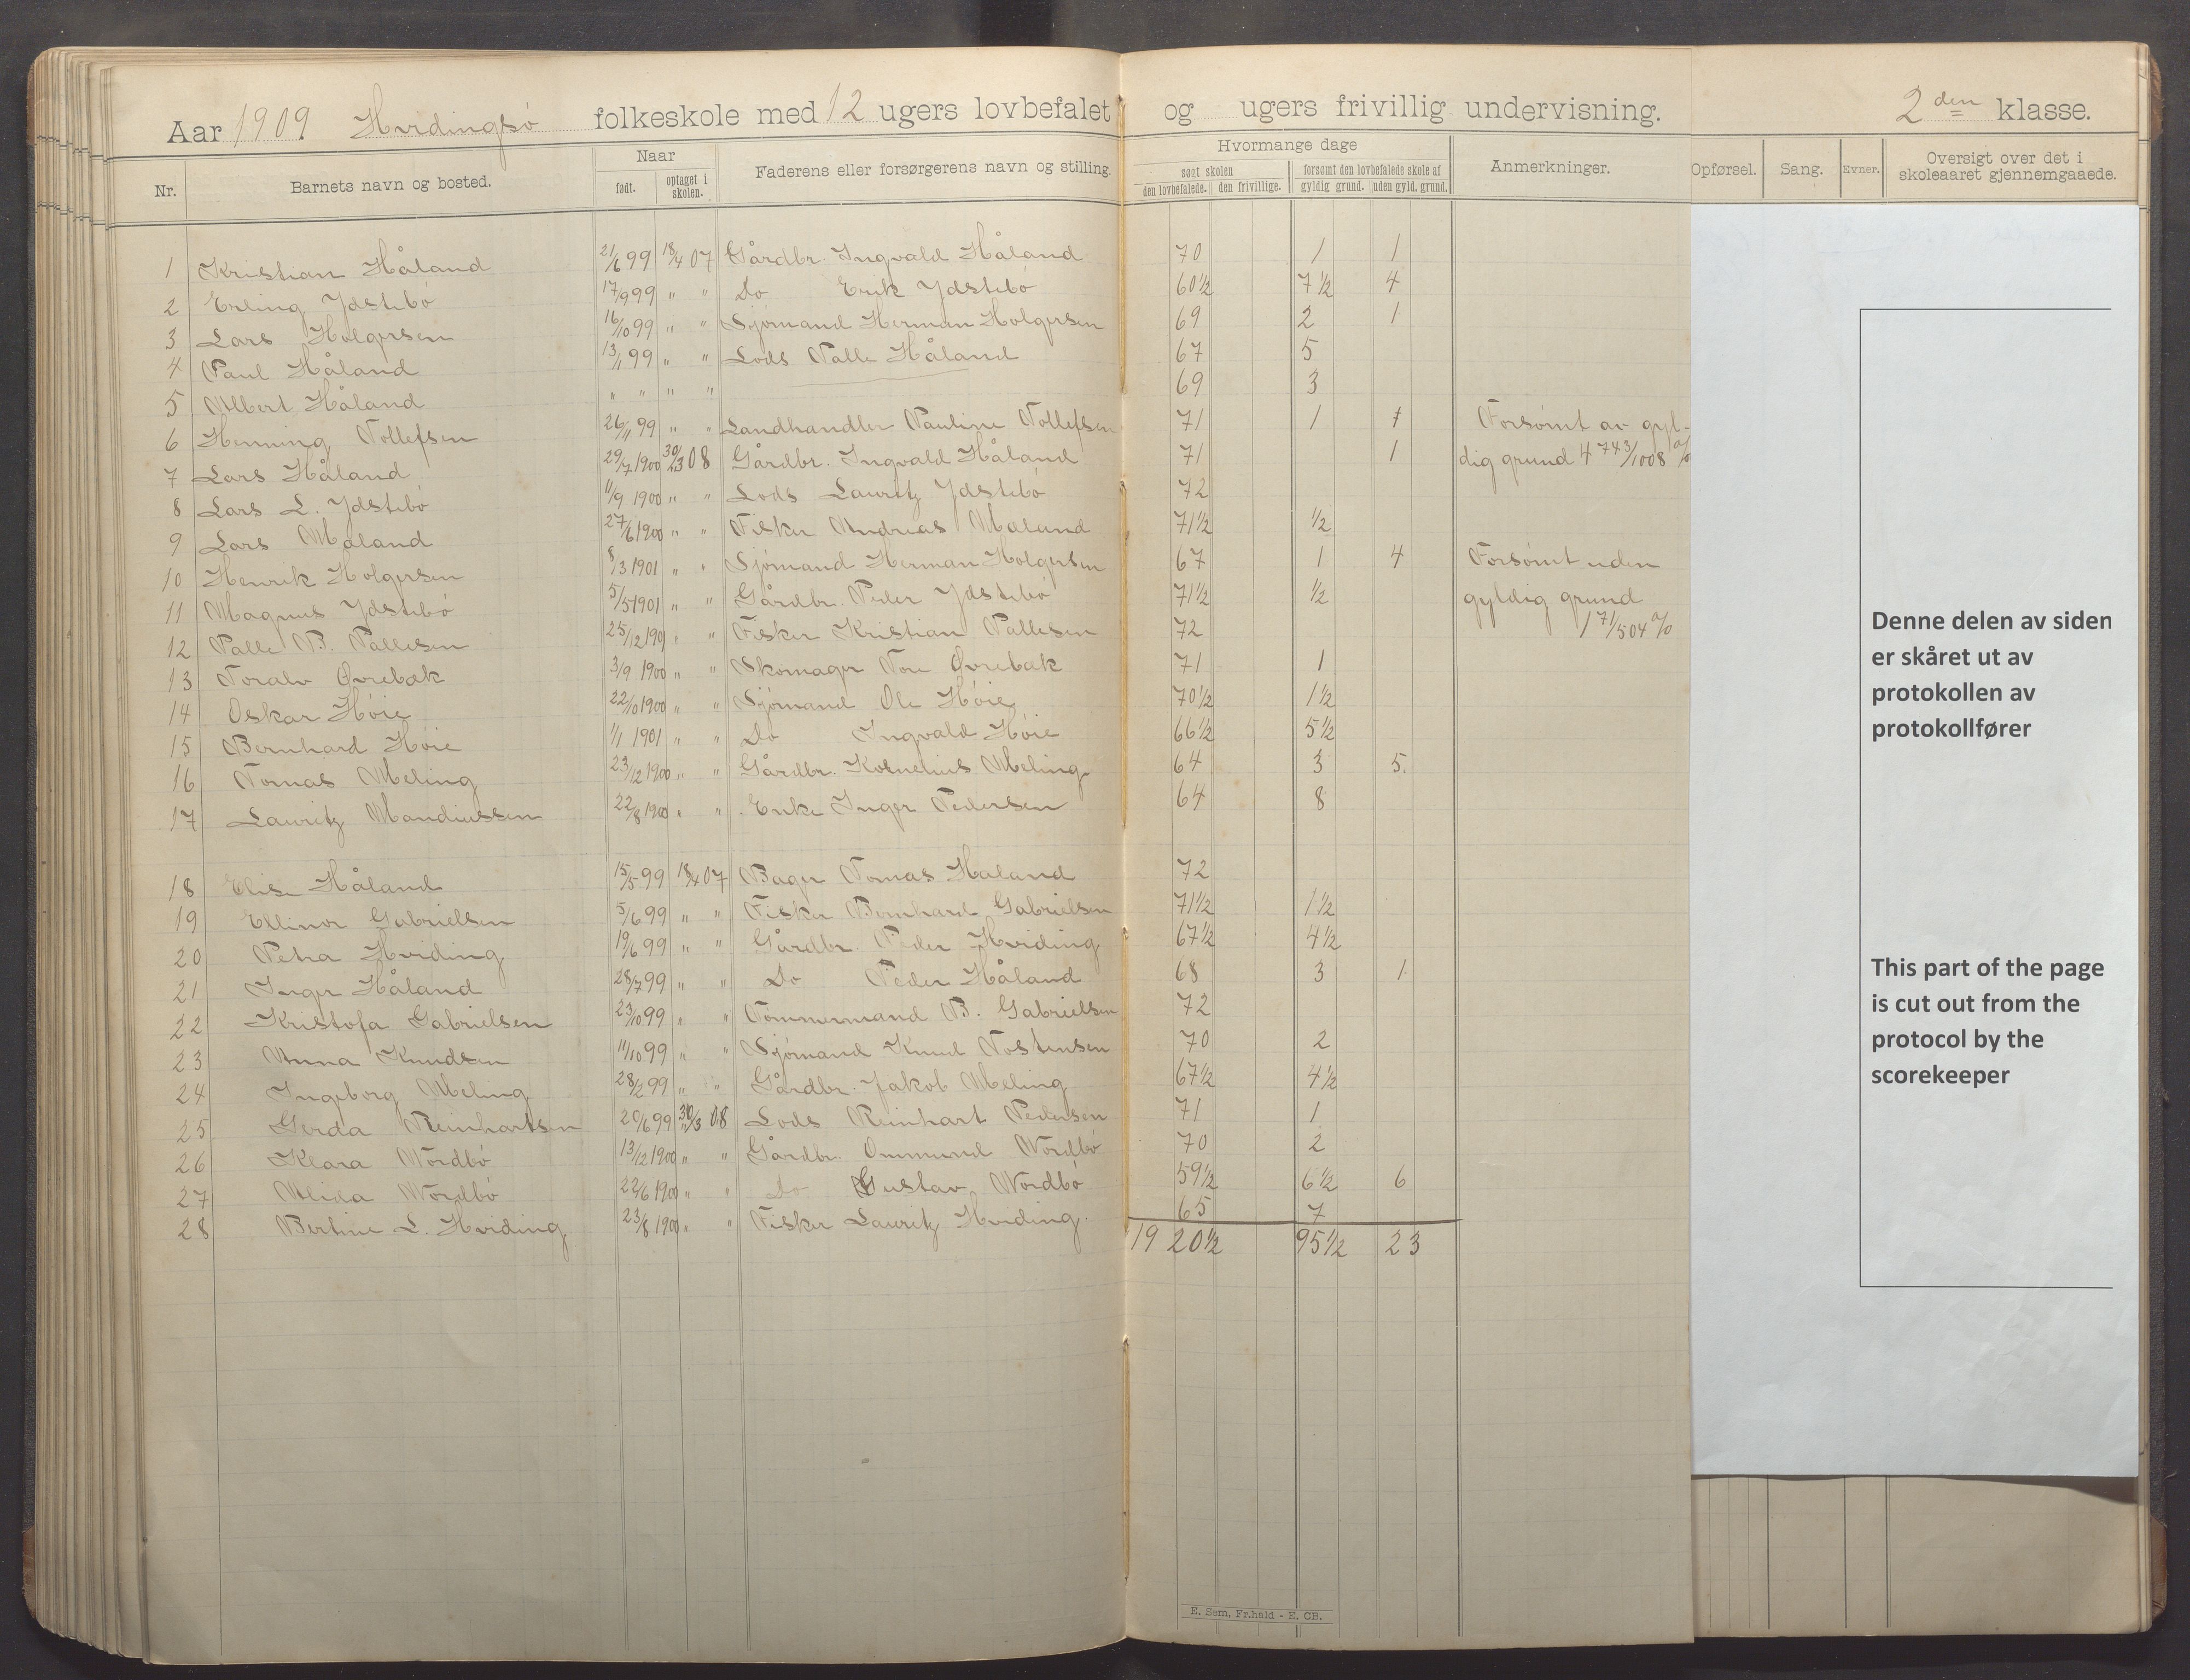 Aar 1909 Hvidingsö folkeskole med 12 ugers lovbefalet og ugers frivillig undervisning. 2den klasse.
Nr. Barnets navn og bosted. Naar født. optaget i skolen. Faderens eller forsørgerens navn og stilling. Hvormange dage søgt skolen den lovbefalede. den frivillige. forsømt den lovbefalede skole af gyldig grund. uden gyld. grund. Anmerkninger. Opførsel. Sang. Evner. Oversigt over det i skoleaaret gjennemgaaede.
1 Kristian Håland 21/6 99 18/4 07 Gårdbr. Ingvald Håland 70 1 1
2 Erling Ydstebö 17/9 99 " " Do Erik Ydstebö 60½ 7½ 4
3 Lars Holgersen 16/10 99 " " Sjömand Herman Holgersen 69 2 1
4 Paul Håland 13/1 99 " " Lods Palle Håland 67 5
5 Albert Håland " " " " 69 3
6 Henning Tollefsen 26/11 99 " " Landhandler Pauline Tollefsen 71 1 1 Forsömt av gyl-
7 Lars Håland 29/7 1900 30/3 08 Gårdbr. Ingvald Håland 71 1 dig grund 4 743/1008 %
8 Lars L. Ydstebö 11/9 1900 " " Lods Lauritz Ydstebö 72
9 Lars Måland 27/6 1900 " " Fisker Andreas Måland 71½ ½
10 Henrik Holgersen 8/3 1901 " " Sjömand Herman Holgersen 67 1 4 Forsömt uden
11 Magnus Ydstebö 5/5 1901 " " Gårdbr. Peder Ydstebö 71½ ½ gyldig grund
12 Palle B. Pallesen 25/12 1901 " " Fisker Kristian Pallesen 72 1 71/504 %
13 Toralv Øvrebæk 3/9 1900 " " Skomager Tore Øvrebæk 71 1
14 Oskar Höie 22/10 1900 " " Sjömand Ole Höie 70½ 1½
15 Bernhard Höie 1/1 1901 " " Do Ingvald Höie 66½ 5½
16 Tomas Meling 23/12 1900 " " Gårdbr. Kornelius Meling 64 3 5.
17 Lauritz Mandiussen 22/8 1900 " " Enke Inger Pedersen 64 8
18 Elise Håland 15/5 99 18/4 07 Bager Tomas Håland 72
19 Ellinor Gabrielsen 5/6 99 " " Fisker Bernhard Gabrielsen 71½ 1½
20 Petra Hviding 19/6 99 " " Gårdbr. Peder Hviding 67½ 4½
21 Inger Håland 28/7 99 " " Do Peder Håland 68 3 1
22 Kristofa Gabrielsen 23/10 99 " " Tömmermand B. Gabrielsen 72
23 Anna Knudsen 11/10 99 " " Sjömand Knud Tostensen 70 2
24 Ingeborg Meling 28/2 99 " " Gårdbr. Jakob Meling 67½ 4½
25 Gerda Reinhartsen 20/6 99 30/3 08 Lods Reinhart Pedersen 71 1
26 Klara Nordbö 13/12 1900 " " Gårdbr. Ommund Nordbö 70 2
27 Alida Nordbö 22/6 1900 " " Do Gustav Nordbö 59½ 6½ 6
28 Bertine L. Hviding 23/8 1900 " " Fisker Lauritz Hviding. 65 7
1920½ 95½ 23
Denne delen av siden
er skåret ut av
protokollen av
protokollfører
This part of the page
is cut out from the
protocol by the
scorekeeper
E. Sem, Fr.hald - E. CB.